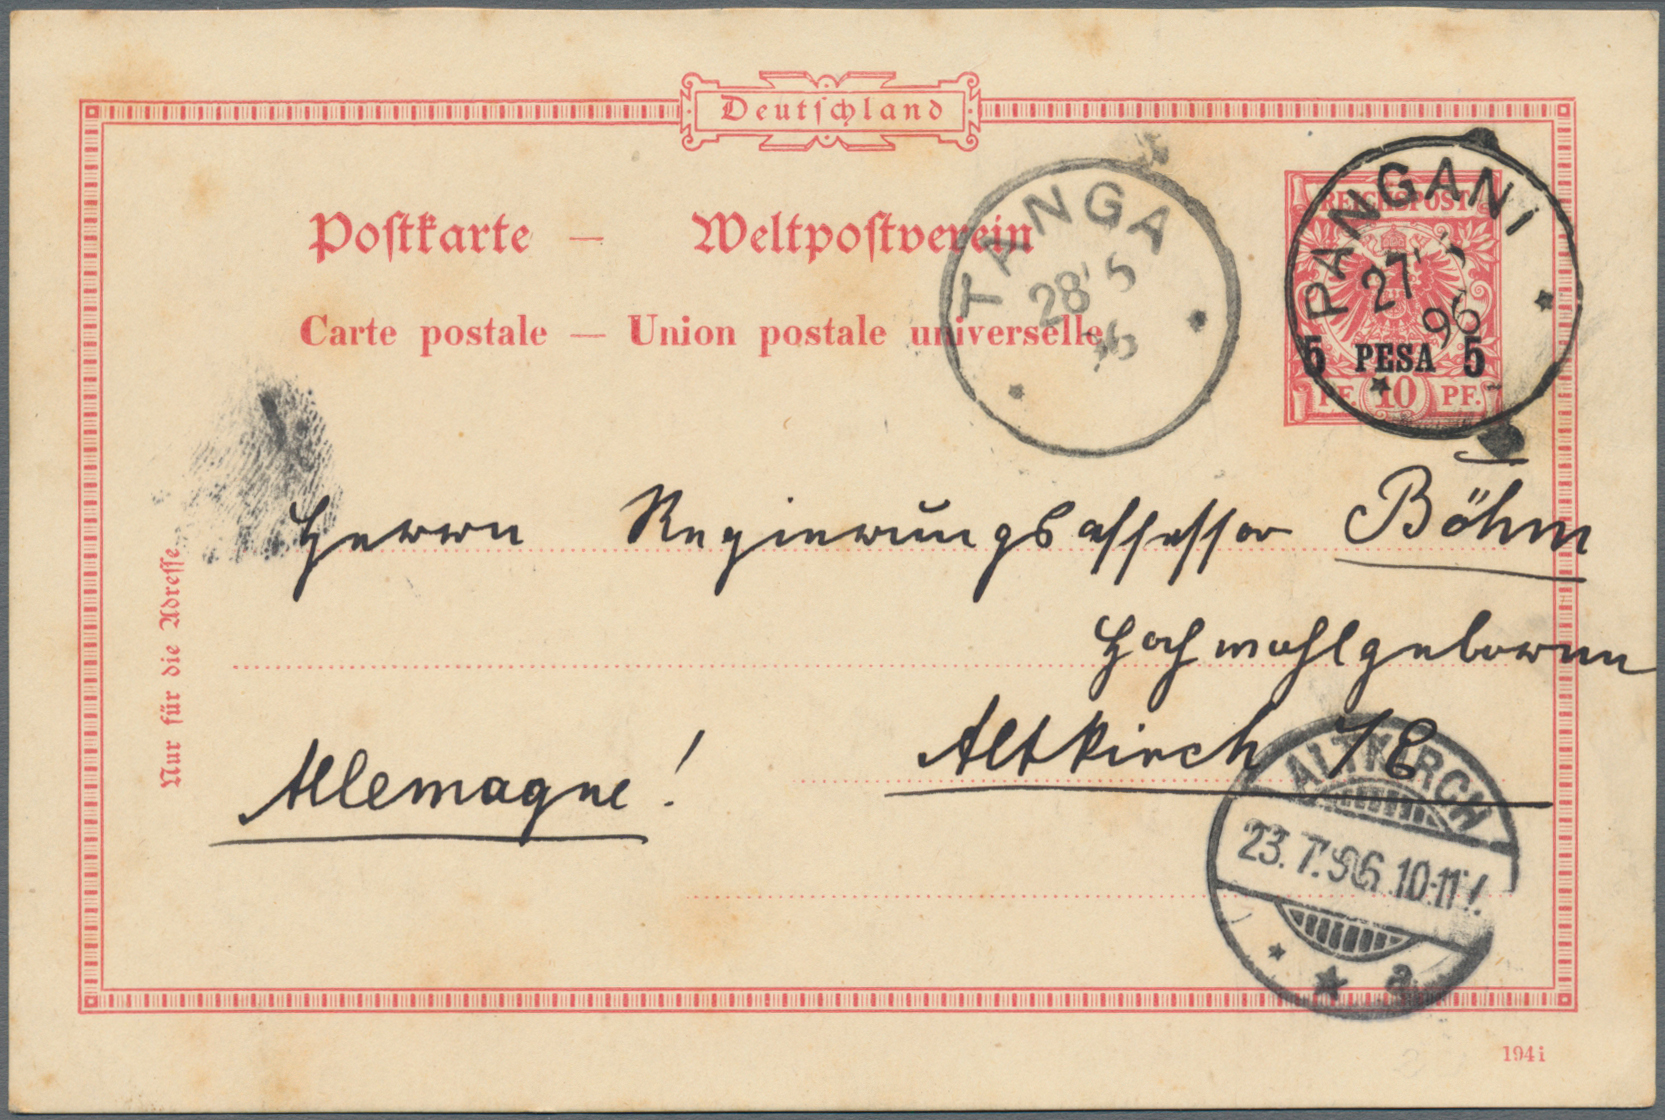 Deutschland
Postkarte — Weltpostverein
Carte postale — Union postale universelle
TANGA
28/5
96
REICHSPOST
PANGANI
27
96
5 PESA 5
PF. 10 PF.
Nur für die Adresse
Herrn Regierungsassessor Böhm
Hochwohlgeboren
Altkirch i/E
Allemagne!
ALTKIRCH
23.7.96 10-11
a.
194i